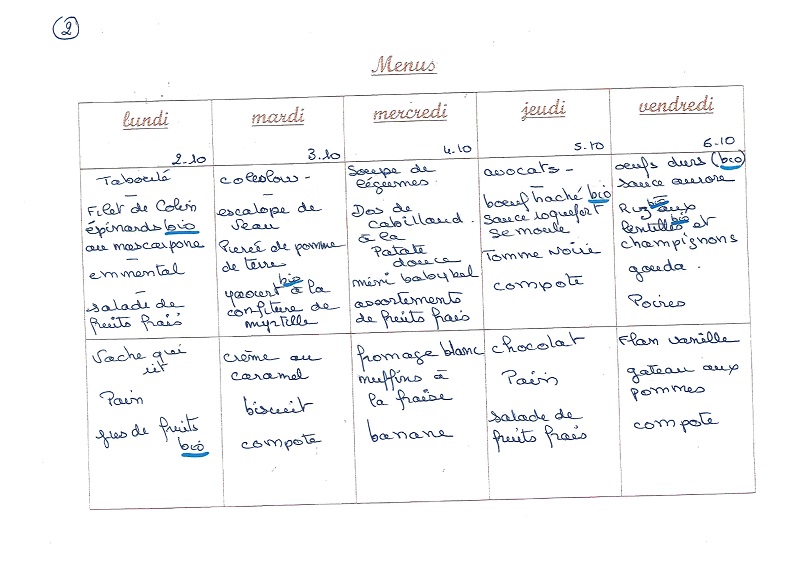 2
Menus
lundi
2.10
Taboulé
–
Filet de Colin
épinards bio
au mascarpone
–
emmental
–
salade de
fruits frais
mardi
3.10
coleslow -
–
escalope de
veau
Purée de pomme
de terre
bio
yaourt à la
confiture de
myrtille
mercredi
4.10
Soupe de
légumes.
Dos de
cabillaud.
à la
Patate
douce
mini babybel
assortements
de fruits frais
jeudi
5.10
avocats -
boeuf haché bio
sauce roquefort
semoule
Tomme Noire
compote
vendredi
6.10
oeufs durs (bio)
sauce aurore
bio
Riz aux
bio
lentilles et
champignons
gouda.
Poires
Vache qui
rit
Pain
jus de fruits
bio
crème au
caramel
biscuit
compote
fromage blanc
muffins à
la fraise
banane
chocolat
Pain
salade de
fruits frais
Flan vanille
gateau aux
pommes
compote